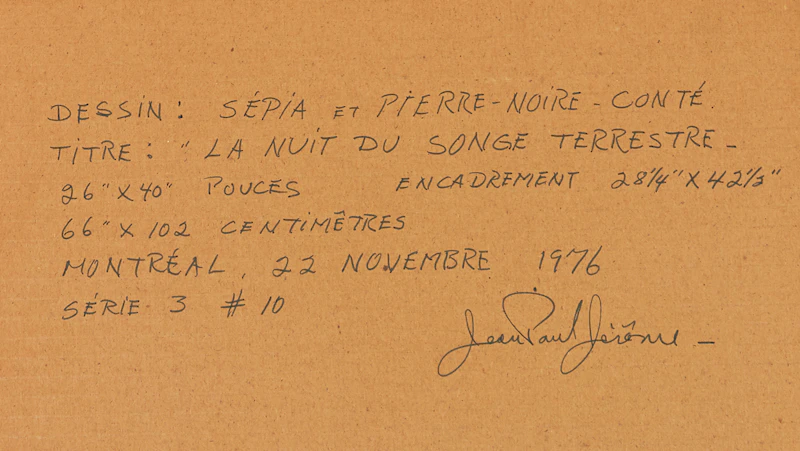 DESSIN : SÉPIA ET PIERRE-NOIRE-CONTÉ.
TITRE : " LA NUIT DU SONGE TERRESTRE -
26" X 40" POUCES ENCADREMENT 28 1/4" X 42 1/3"
66" X 102 CENTIMÊTRES
MONTRÉAL, 22 NOVEMBRE 1976
SÉRIE 3 # 10
Jean Paul Jérôme -